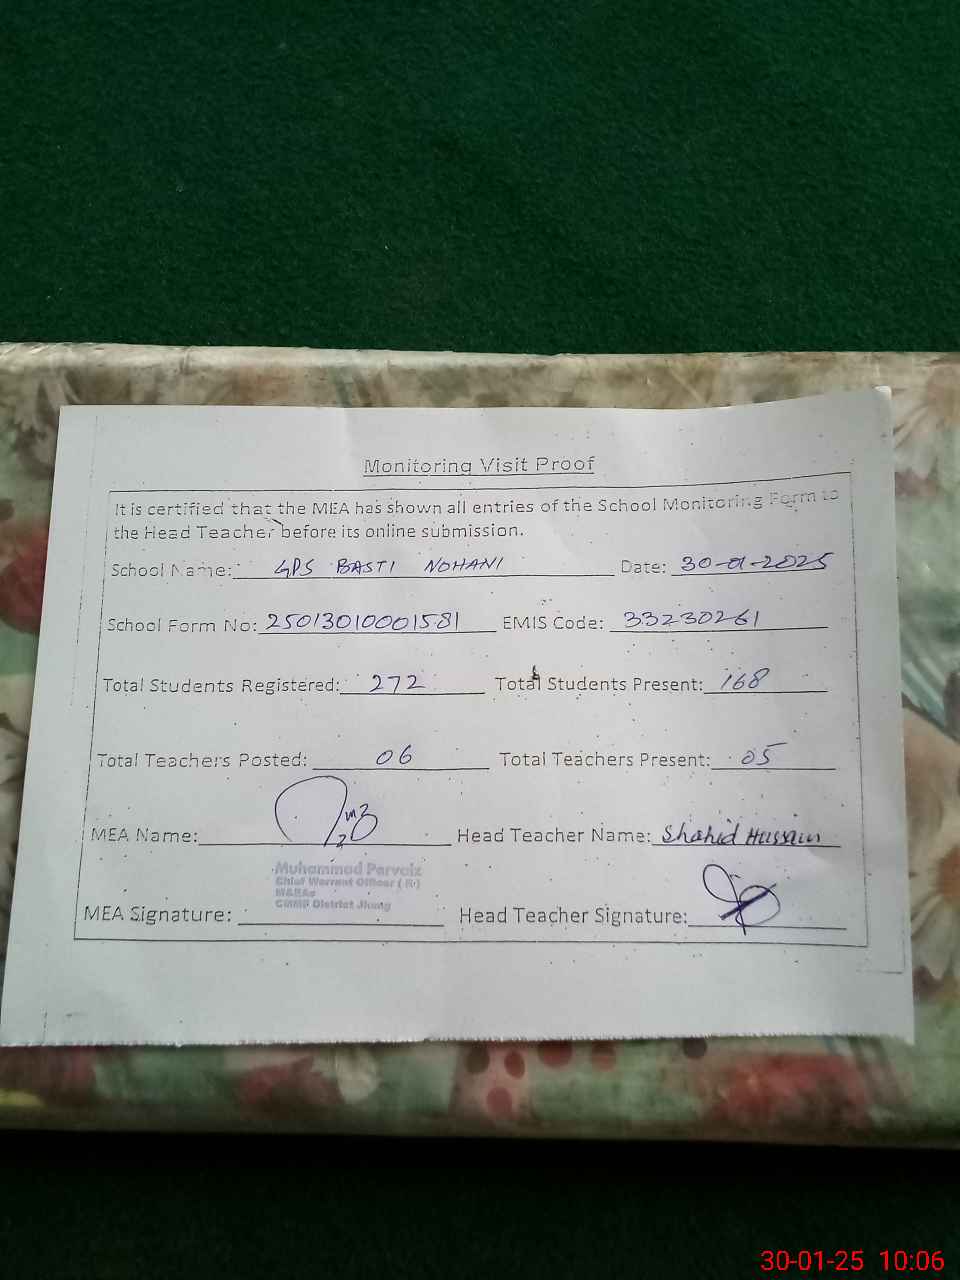 Monitoring Visit Proof
It is certified that the MEA has shown all entries of the School Monitoring Form to
the Head Teacher before its online submission.
School Name: GPS BASTI NOHANI Date: 30-01-2025
School Form No: 25013010001581 EMIS Code: 33230261
Total Students Registered: 272 Total Students Present: 168
Total Teachers Posted: 06 Total Teachers Present: 05
MEA Name: Head Teacher Name: Shahid Hussain
Muhammad Parvaiz
Chief Warrant Officer ( R )
CMMF District Jhang
MEA Signature: Head Teacher Signature:
30-01-25 10:06